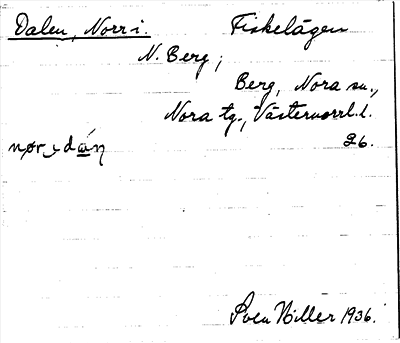 Dalen, Norr i. Fiskelägen
N. Berg;
Berg, Nora sn.,
Nora tg., Västernorrl. l.
26.
Sven Hiller 1936.